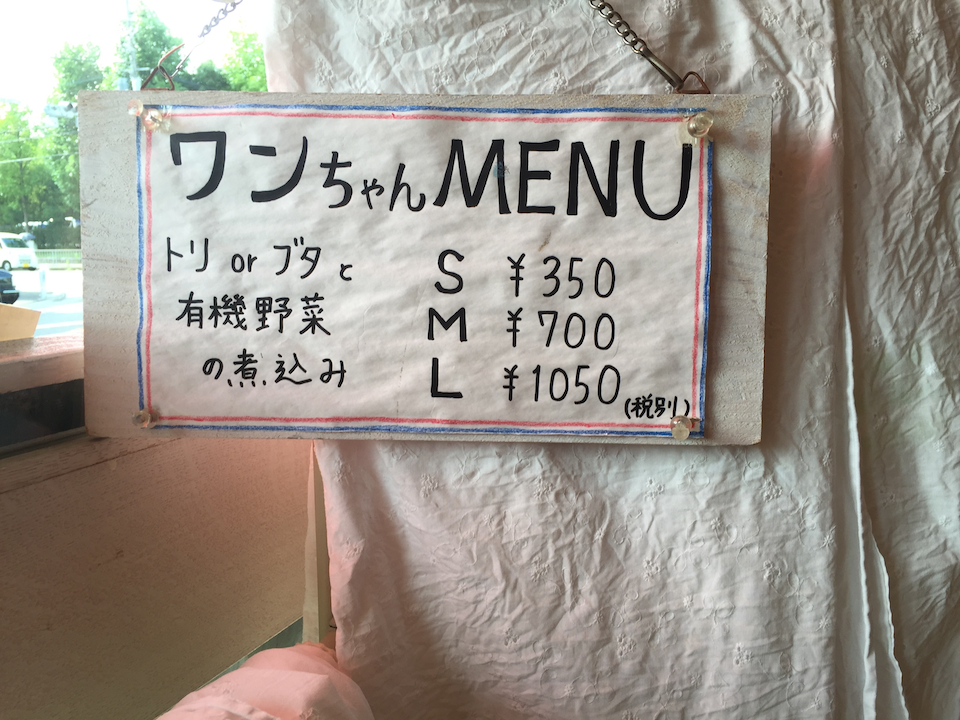 ワンちゃんMENU
トリ or ブタ と
有機野菜
の煮込み
S ¥350
M ¥700
L ¥1050
(税別)